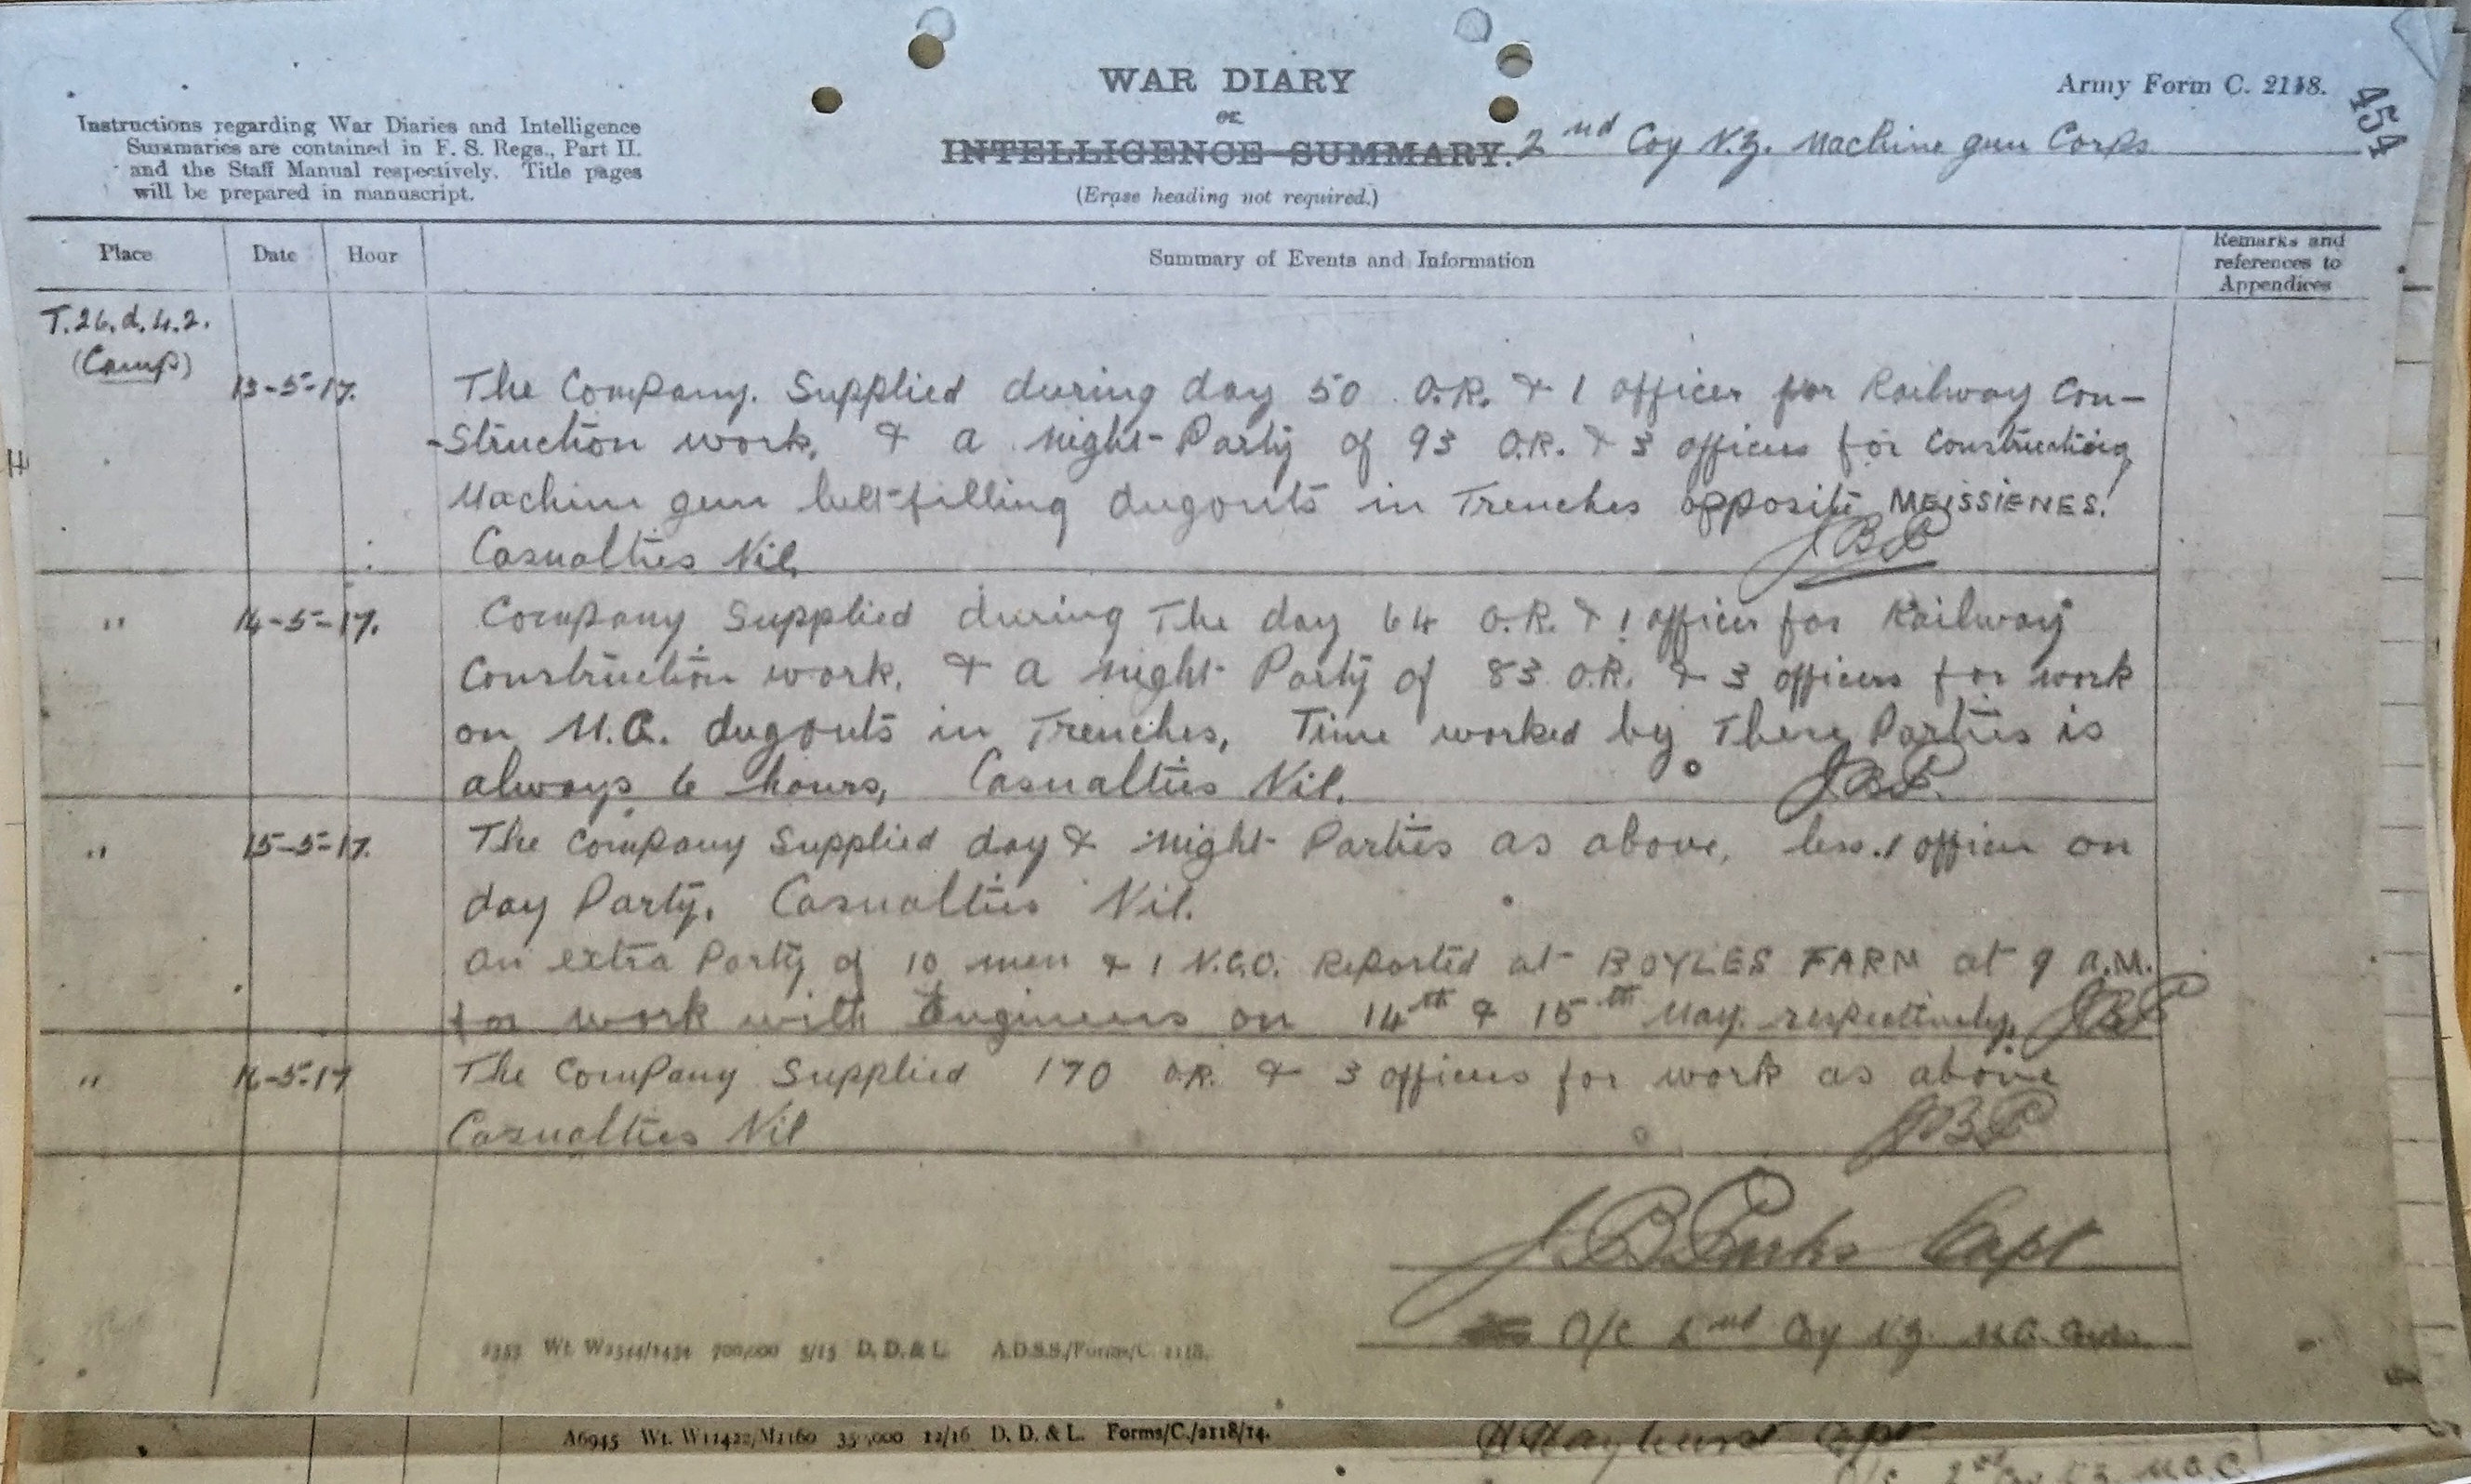 WAR DIARY
or
INTELLIGENCE SUMMARY.
(Erase heading not required.)
Army Form C. 2118.
454
Instructions regarding War Diaries and Intelligence
Summaries are contained in F. S. Regs., Part II.
and the Staff Manual respectively. Title pages
will be prepared in manuscript.
2nd Coy N.Z. Machine gun Corps
Place Date Hour Summary of Events and Information Remarks and
references to
Appendices
T.26.d.4.2.
(Camp)
13-5-17. The Company. Supplied during day 50 O.R. & 1 officer for Railway Con-
-struction work, & a night-Party of 93 O.R. & 3 officers for constructing
Machine gun belt-filling dugouts in Trenches opposite MEISSIENES.
Casualties Nil. JBP
" 14-5-17. Company Supplied during The day 64 O.R. & 1 officer for Railway
Construction work, & a night Party of 83 O.R. & 3 officers for work
on M.G. dugouts in Trenches, Time worked by These Parties is
always 6 hours, Casualties Nil. JBP.
" 15-5-17. The Company Supplied day & night Parties as above, less 1 officer on
day Party. Casualties Nil.
An extra Party of 10 men & 1 N.C.O. Reported at BOYLES FARM at 9 A.M.
for work with Engineers on 14th & 15th May. respectively. JBP
" 16-5-17 The Company Supplied 170 O.R. & 3 officers for work as above
Casualties Nil JBP
J. B. Parks Capt
O/C 2nd Coy N.Z. M.G. Corps.
2353 Wt. W2544/1454 700,000 5/15 D. D. & L. A.D.S.S./Forms/C. 2118.
A6945 Wt. W11422/M1160 35,000 12/16 D. D. & L. Forms/C./2118/14.
Capt
O/c 2nd Coy N.Z. M.G.C.